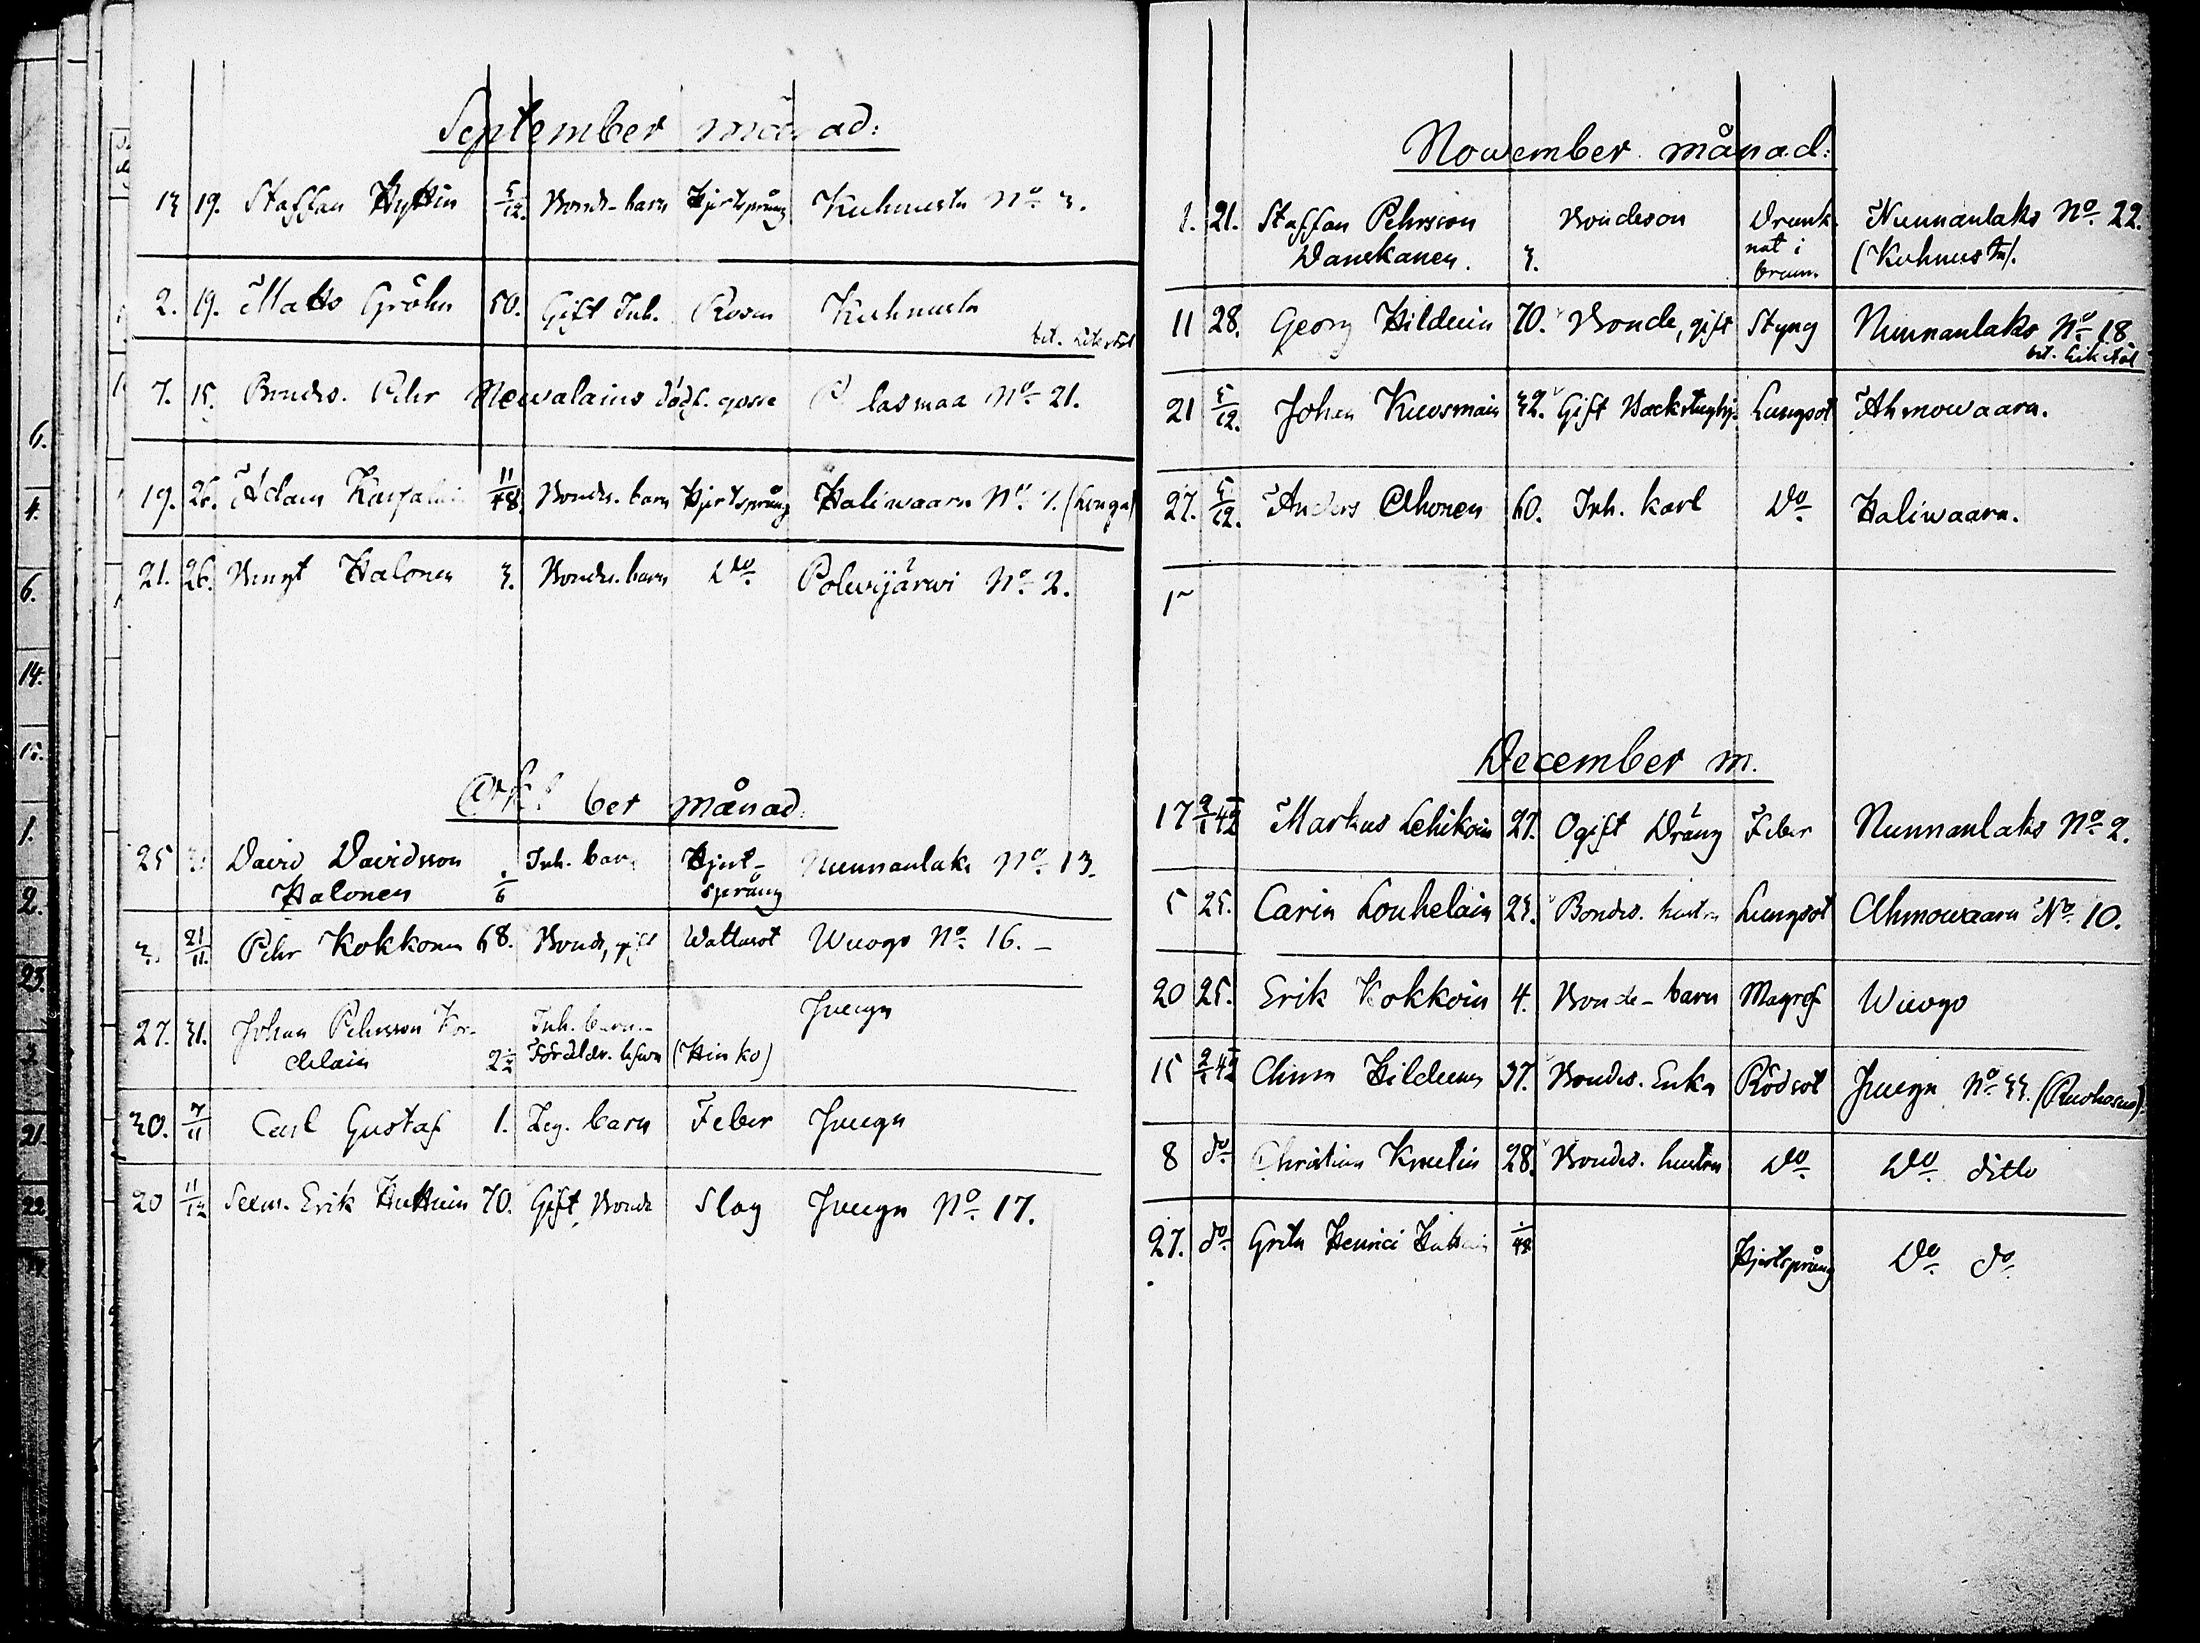 September månad:
13 19. Staffan Hyttin 5/12. Bonde-barn Hjertsprång Kuhnusta No. 3.
2. 19. Matts Gröhn 50. Gift Inh. Rosen Kuhnusta
7. 15. Bondes. Pehr Newalains dödf. gosse P lasmaa No. 21.
19. 26. Adam Karjalai 11/48. Bondes. barn Hjertsprång Haliwaara No. 1. (Longa)
21. 26. Bengt Halonen 3. Bondes. barn Do. Polwijärwi No. 2.
Oktober månad:
25 David Davidsson Inh. barn Hjert- Nunnanlaks No. 13.
Halonen /6 språng
3. 21/11. Pehr Kokkonen 68. Bonde, gift Wattusot Wuogo No. 16. –
27. 31. Johan Pehrsson Inh. barn Juuga
2 1/2 Föräldr. (Hinko)
30. 7/11 Carl Gustaf 1. Leg. barn Feber Juuga
20 11/12 Sexm. Erik Huttuin 70. Gift, Bonde Slag Juuga No. 17.
Nowember månad:
1. 21. Staffan Pehrsson Bondeson Drunk- Nunnanlaks No. 22.
Danskanen. 3. nat i (Kuhnusta).
brunn
11 28. Georg Hilduin 70. Bonde, gift Styng Nunnanlaks No. 18
21 5/12. Johan Kuosmain 32. Gift Backstughj. Lungsot Ahmowaara.
27. 5/12. Anders Ahonen 60. Inh. karl Do. Haliwaara.
December m.
17 2/1 42 Markus Lehikoin 27. Ogift Dräng Feber Nunnanlaks No. 2.
5 25. Carin Louhelain 23. Bondes. hustru Lungsot Ahmowaara No. 10.
20 25. Erik Kokkoin 4. Bonde-barn Magref Wuogo
15 2/1 42 Anna Hilduin 37. Bondes. Enka Rödsot Juuga No. 33. (Ruohoranta)
8 do. Christina Knutin 28. Bondes. hustru Do. Do. ditto
27. do. Greta Henrici /48 Hjertsprång Do. do.